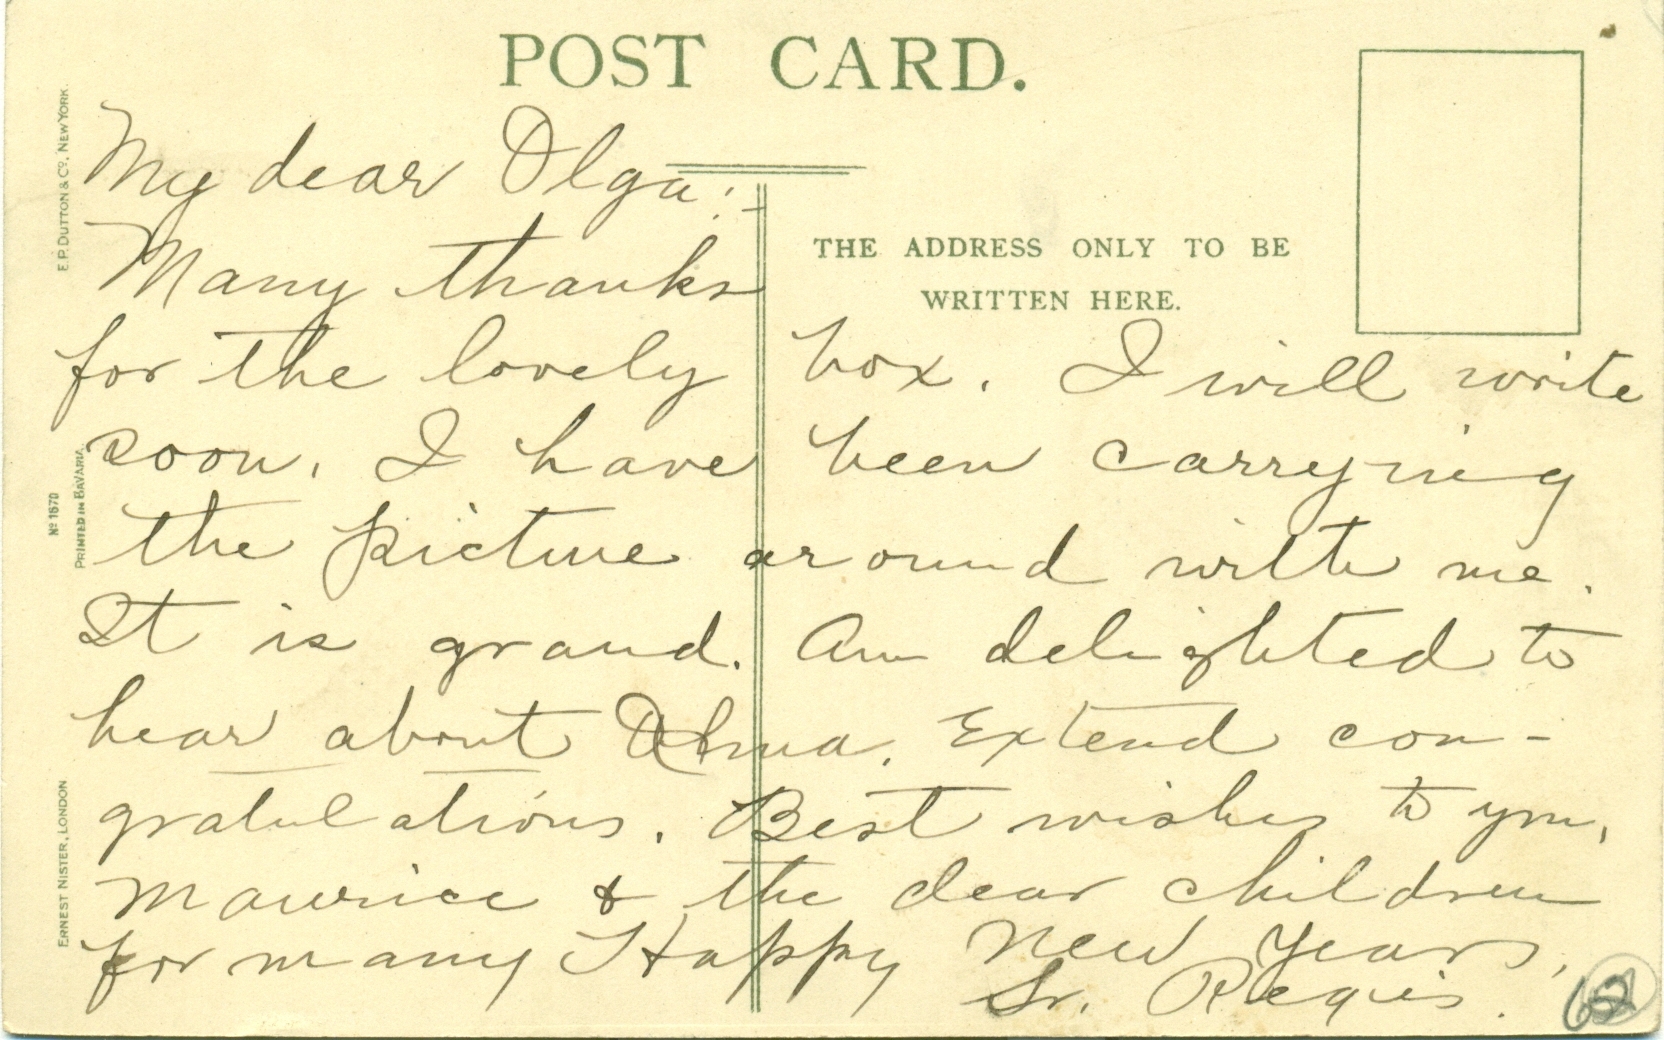 POST CARD.
My dear Olga:-
THE ADDRESS ONLY TO BE
WRITTEN HERE.
Many thanks
for the lovely box. I will write
soon. I have been carrying
the picture around with me.
It is grand. Am delighted to
hear about Alma. Extend con-
gratulations. Best wishes to you,
Maurice & the dear children
for many Happy New Years,
Sr. Regis.
62
E.P. DUTTON & Co. NEW YORK.
No 1670
PRINTED IN BAVARIA.
ERNEST NISTER, LONDON